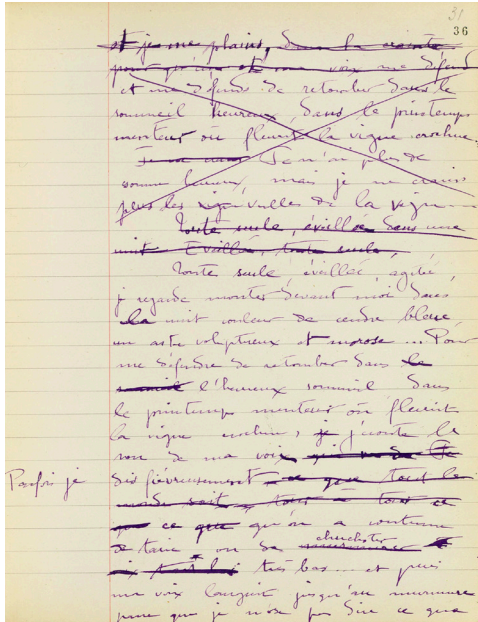 31
36
et je me plains, dans la crainte
et ma voix me défend
et me défend de retomber dans le
sommeil heureux, dans le printemps
menteur où fleurit la vigne crochue.
Je n'ai plus de
somme heureux, mais je ne crains
plus les vrilles de la vigne
Toute seule, éveillée dans une
nuit Eveillée, toute seule,
Toute seule éveillée, agitée,
je regarde monter devant moi dans
la nuit couleur de cendre bleue
un astre voluptueux et morose ... Pour
me défendre de retomber dans le
sommeil l'heureux sommeil dans
le printemps menteur où fleurit
la vigne crochue, je j'écoute le
son de ma voix,
Parfois je dis fiévreusement ce que tout le
monde sait, tout
ce que qu'on a coutume
de taire ou de chuchoter
très bas ... et puis
ma voix languit jusqu'au murmure
parce que je n'ose pas dire ce que